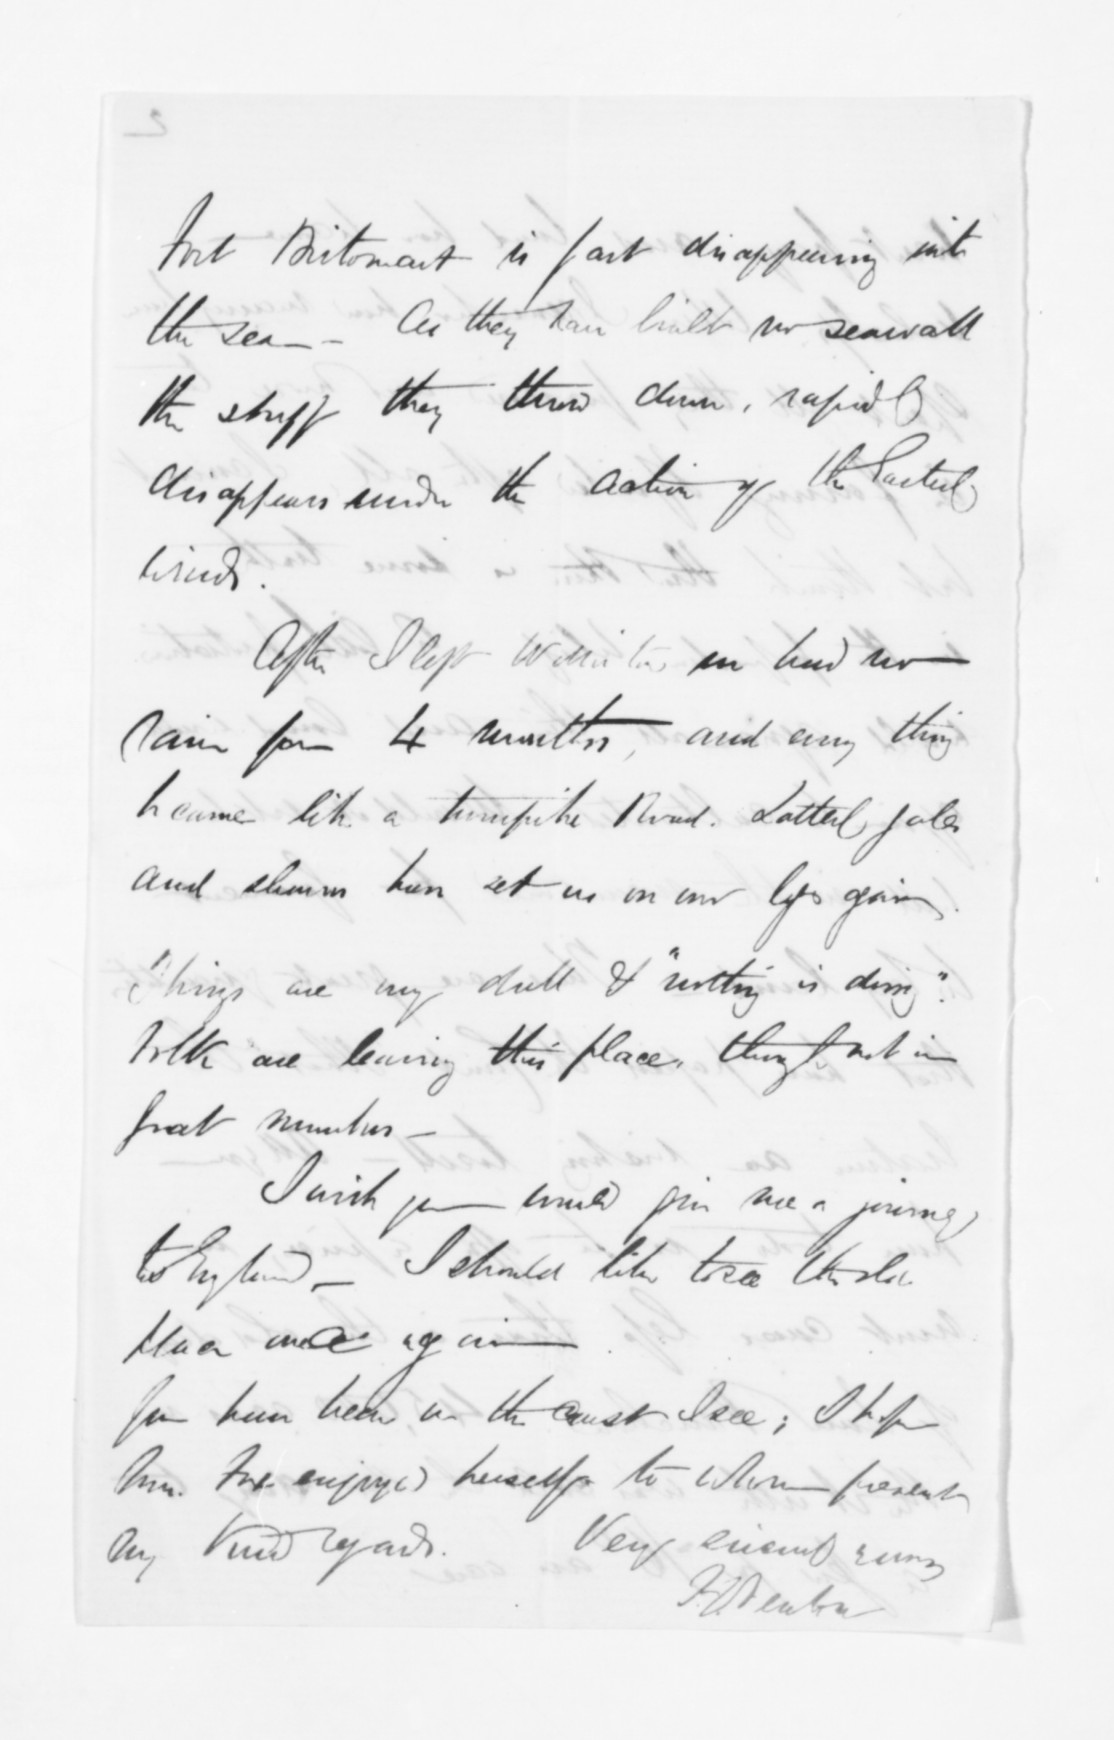 Fort Britomart is fast disappearing into
the sea - As they have built no seawall
the stuff they throw down, rapidly
disappears under the action of the Easterly
winds.
After I left Wellington we had no
rain for 4 months, and every thing
became like a turnpike Road. Latterly gales
and showers have set us on our legs again.
Things are very dull & "nothing is doing".
Folk are leaving this place, though not in
great numbers -
I wish you would give me a journey
to England - I should like to see the old
place once again
You have been on the coast I see; I hope
Mrs. Fox enjoyed herself to whom present
my kind regards. Very sincerely yours